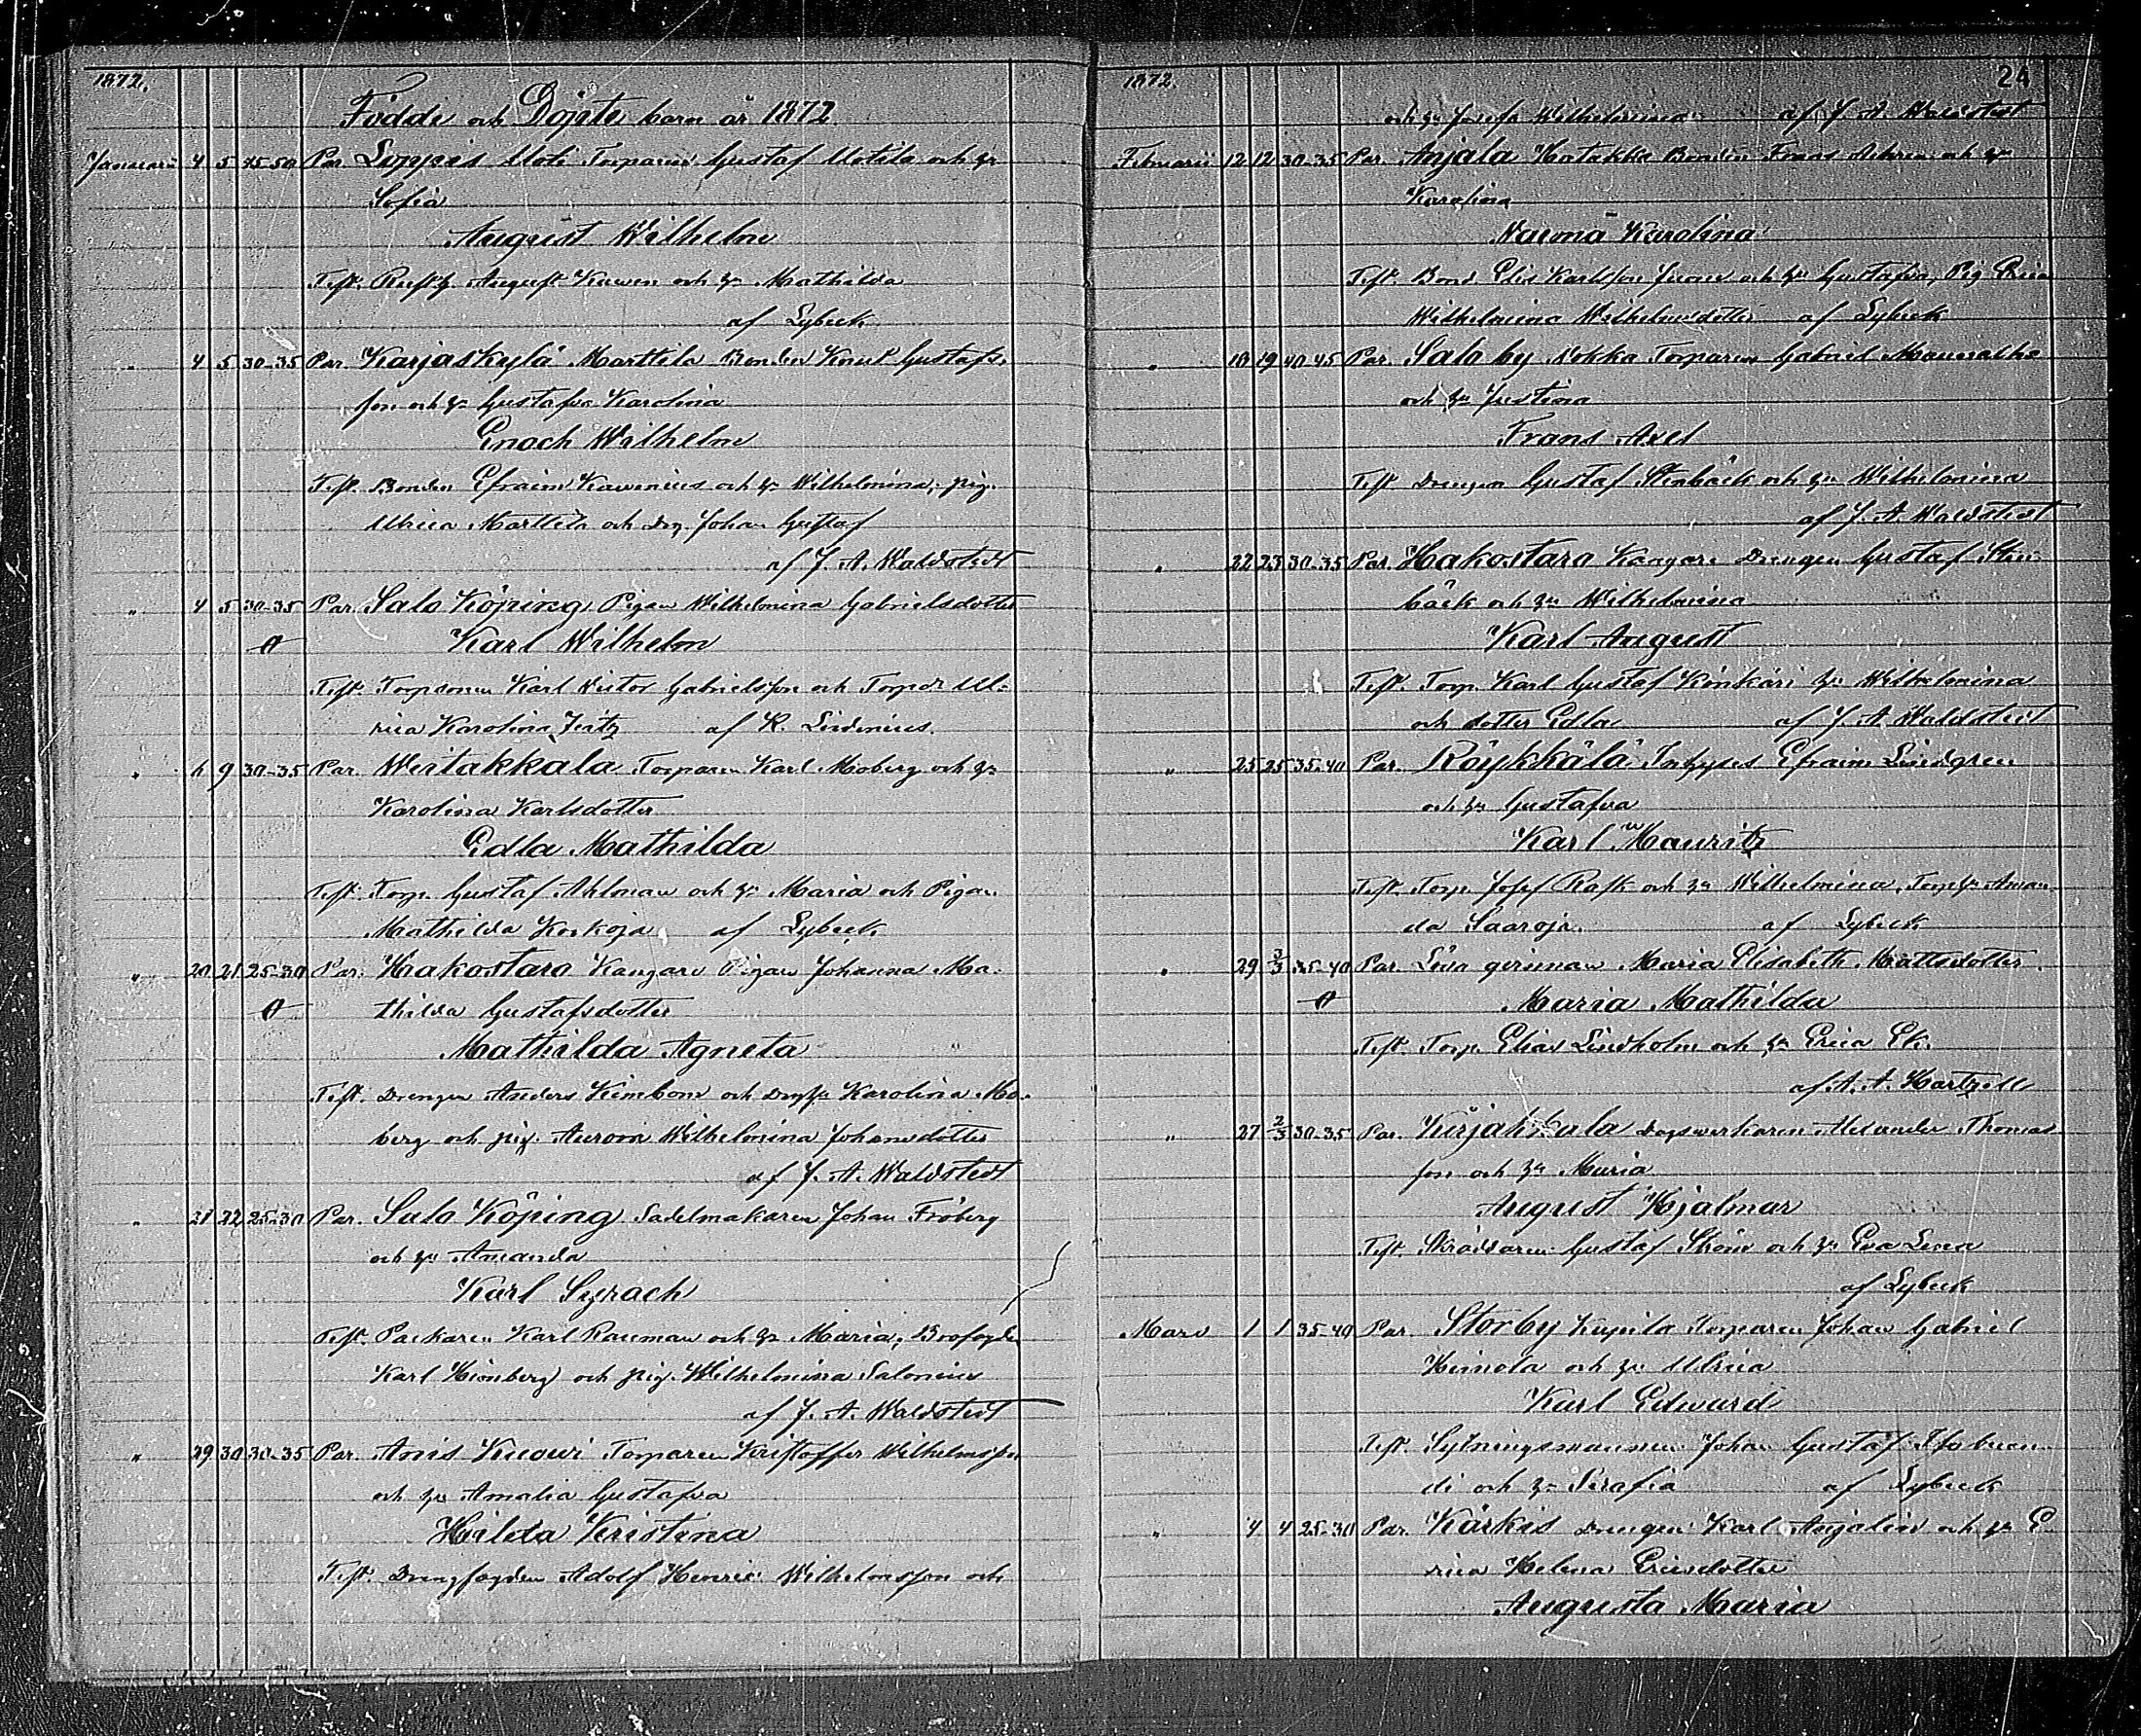 1872.
Födde och Döpte barn år 1872
Januari 4 5 45-50 Par. Loppis Uoti Torparen Gustaf Uotila och hu
Sofia
August Wilhelm
Test. Rusth. August Kawen och hu Mathilda
af Lybeck
" 4 5 30-35 Par. Karjaskylä Marttila Bonden Knut Gustafs-
son och hu Gustafva Karolina
Enoch Wilhelm
Test. Bonden Efraim Kawenius och hu Wilhelmina, pig.
Ulrica Marttila och drg. Johan Gustaf
af J. A. Waldstedt
" 4 5 30-35 Par. Salo Köping Pigan Wilhelmina Gabrielsdotter
Karl Wilhelm
Test. Torpsonen Karl Victor Gabrielsson och Torpdr Ul-
rica Karolina af K. Lindenius.
" 6 9 30-35 Par. Weitakkala Torparen Karl Moberg och hu
Karolina Karlsdotter
Edla Mathilda
Test. Torp. Gustaf Ahlman och hu Maria och Pigan
Mathilda Korkoja af Lybeck
" 20 21 25-30 Par. Hakostaro Kangare Pigan Johanna Ma-
thilda Gustafsdotter
Mathilda Agneta
Test. Drengen Anders Kimbom och drghu Karolina Mo-
berg och pig. Aurora Wilhelmina Johansdotter
af J. A. Waldstedt
" 21 22 25-30 Par. Salo Köping Sadelmakaren Johan Fröberg
och hu Amanda
Karl Syrach
Test. Packaren Karl Rauman och hu Maria, Brofogden
Karl Heinberg och pig. Wilhelmina Salonius
af J. A. Waldstedt
" 29 30 30-35 Par. Anis Torparen Kristoffer Wilhelmsson
och hu Amalia Gustafva
Hilda Kristina
Test. Drengfogden Adolf Henric Wilhelmsson och
1872. 24
och hu Josefa Wilhelmina af J. A. Waldstedt
Februarii 12 12 30-35 Par. Anjala Hatakka Bonden Frans och hu
Karolina
Naimä Karolina
Test. Bond. Elis Karlsson och hu Gustafva, Pig. Erica
Wilhelmina Wilhelmsdotter af Lybeck
" 18 19 40-45 Par. Salo by Nokka Torparen Gabriel
och hu Justina
Frans Axel
Test. Drengen Gustaf Stenbäck och hu Wilhelmina
af J. A. Waldstedt
" 22 23 30-35 Par. Hakostaro Kangare Drengen Gustaf Sten-
bäck och hu Wilhelmina
Karl August
Test. Torp. Karl Gustaf Kinkäri hu Wilhelmina
och dotter Edla af J. A. Waldstedt
" 25 25 35-40 Par. Röykkälä Inhyses Efraim Lindgren
och hu Gustafva
Karl Mauritz
Test. Torp. Josef Rask och hu Wilhelmina, Torphu Aman-
da Saaroja. af Lybeck
" 29 2/3 35-40 Par. Maria Elisabeth Mattsdotter
Maria Mathilda
Test. Torp. Elias Lindholm och hu Erica Ek.
af A. A. Hartzell
" 27 2/3 30-35 Par. Kirjakkala Dagsverkaren Alexander Thomas-
son och hu Maria
August Hjalmar
Test. Skräddaren Gustaf Ström och hu Eva Lena
af Lybeck
Mars 1 1 35-40 Par. Storby Kupila Torparen Johan Gabriel
Heinola och hu Ulrica
Karl Edward
Test. Sytningsmannen Johan Gustaf
di och hu Serafia af Lybeck
" 4 4 25-30 Par. Kärkis drengen Karl Anjalin och hu E-
rica Helena Ericsdotter
Augusta Maria